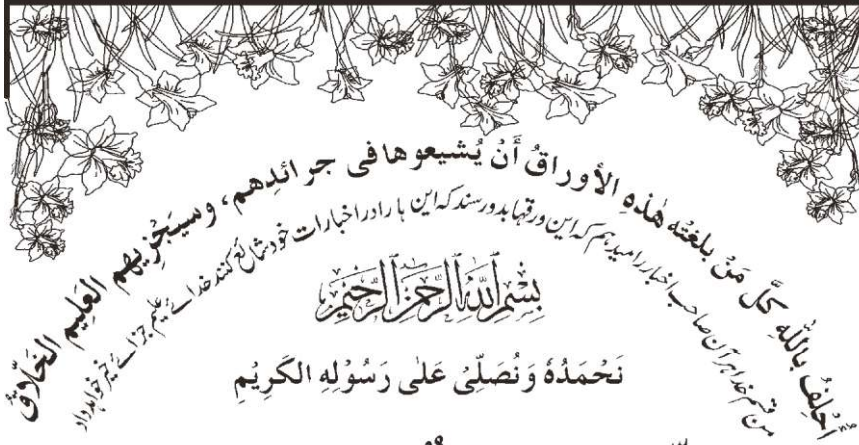 أُحلِفُ باللّٰهِ كُلَّ مَنْ بلغَتْه هٰذهِ الأوراقُ أَنْ يُشيعوها فى جرائدِهم، وسيَجْزِيهم العَلِيم الخَلّاقُ
من قسم خدا هر آن صاحب اخبار را میدهم که این ورقها بدو رسند که این ها را در اخبارات خود شائع کنند خدائے علیم جزائے خیر خواہد داد
بِسْمِ اللّٰهِ الرَّحْمٰنِ الرَّحِيْمِ
نَحْمَدُهٗ وَنُصَلِّىْ عَلٰى رَسُوْلِهِ الكَرِيْمِ